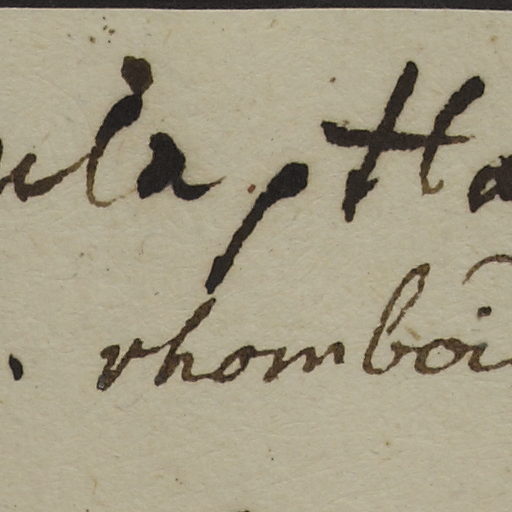 ula, Ha
. rhomboi